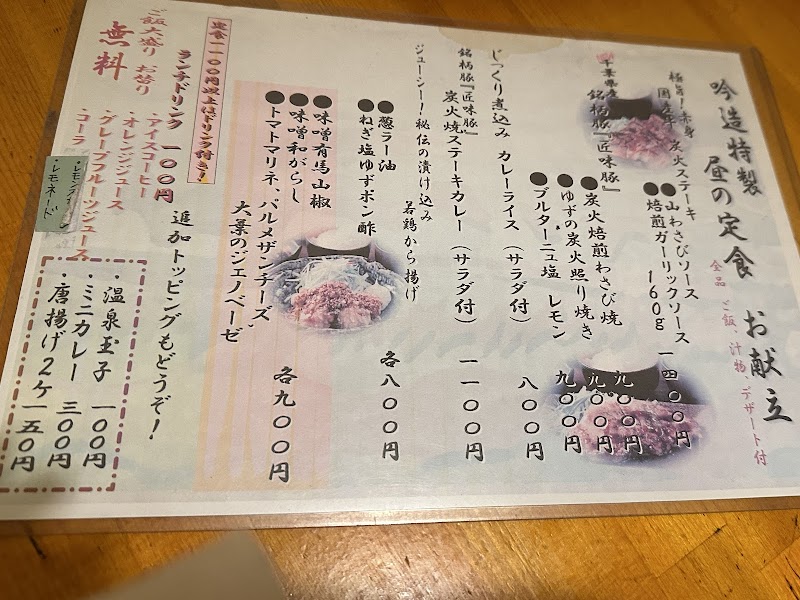 吟造特製 昼の定食 お献立
全品 ご飯・汁物 デザート付
極旨!赤身
国産牛 炭火ステーキ
●山わさびソース
●焙煎ガーリックソース
160g
一四〇〇円
千葉県産
銘柄豚『匠味豚』
●炭火焙煎わさび焼 九〇〇円
●ゆずの炭火照り焼き 九〇〇円
●ブルターニュ塩 レモン 九〇〇円
じっくり煮込み カレーライス (サラダ付) 八〇〇円
銘柄豚『匠味豚』
炭火焼ステーキカレー (サラダ付) 一一〇〇円
ジューシー!秘伝の漬け込み
若鶏から揚げ
●葱ラー油
●ねぎ塩ゆずポン酢
各八〇〇円
●味噌有馬山椒
●味噌和がらし
●トマトマリネ、パルメザンチーズ、
大葉のジェノベーゼ
各九〇〇円
定食一一〇〇円以上はドリンク付き!
ご飯大盛り お替り
無料
ランチドリンク 一〇〇円
・アイスコーヒー
・オレンジジュース
・グレープフルーツジュース
・コーラ
・レモネード
追加トッピングもどうぞ!
・温泉玉子 一〇〇円
・ミニカレー 三〇〇円
・唐揚げ2ケ 一五〇円